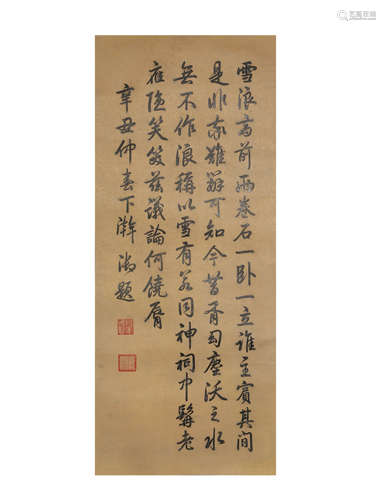 雪浪齋前兩卷石一卧一立誰主賓其間
是非難可知今昔胥勾塵沃之水
無不作浪稱以雪有若同神祠中髯老
應隐笑發茲議論何饒脣
辛丑仲春下澣御題